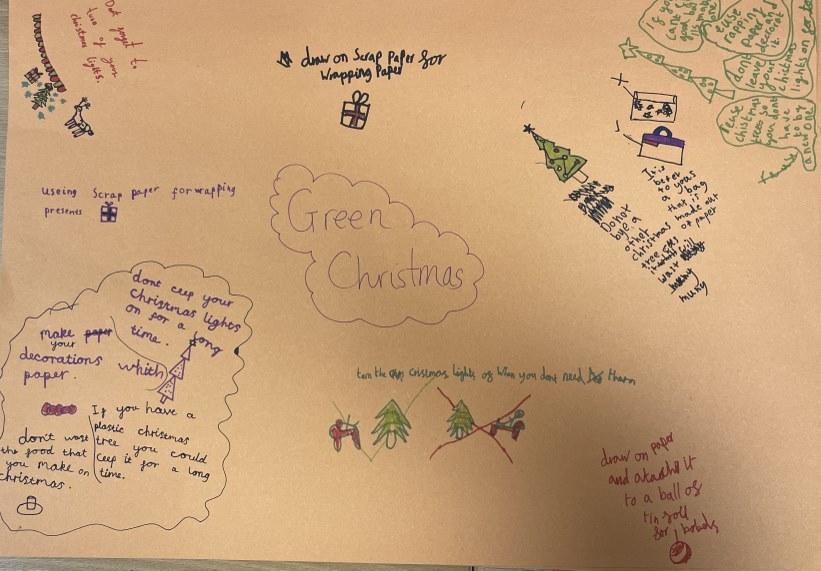 Dont forget to
turn of your
christmas lights.
draw on Scrap Paper for
Wrapping Paper
if you
cant
reuse
rapping
paper
decorand
it.
dont
leave
your
christmas
lights on for to
reuse
christmas
trees so
you dont
have
to buy
a new one
It is
beter
to youas
a bag
that is
made out
of paper
Do not
bye a
other
christmas
tree
it will
wast
muny
useing Scrap paper for wrapping
presents
Green
Christmas
dont ceep your
Christmas lights
on for a long
time.
make paper
your
decorations
whith
paper.
If you have a
plastic christmas
tree you could
ceep it for a long
time.
don't wast
the food that
you make on
christmas.
turn the cristmas lights of when you dont need them
draw on paper
and atatch it
to a ball of
tin foil
for bobols